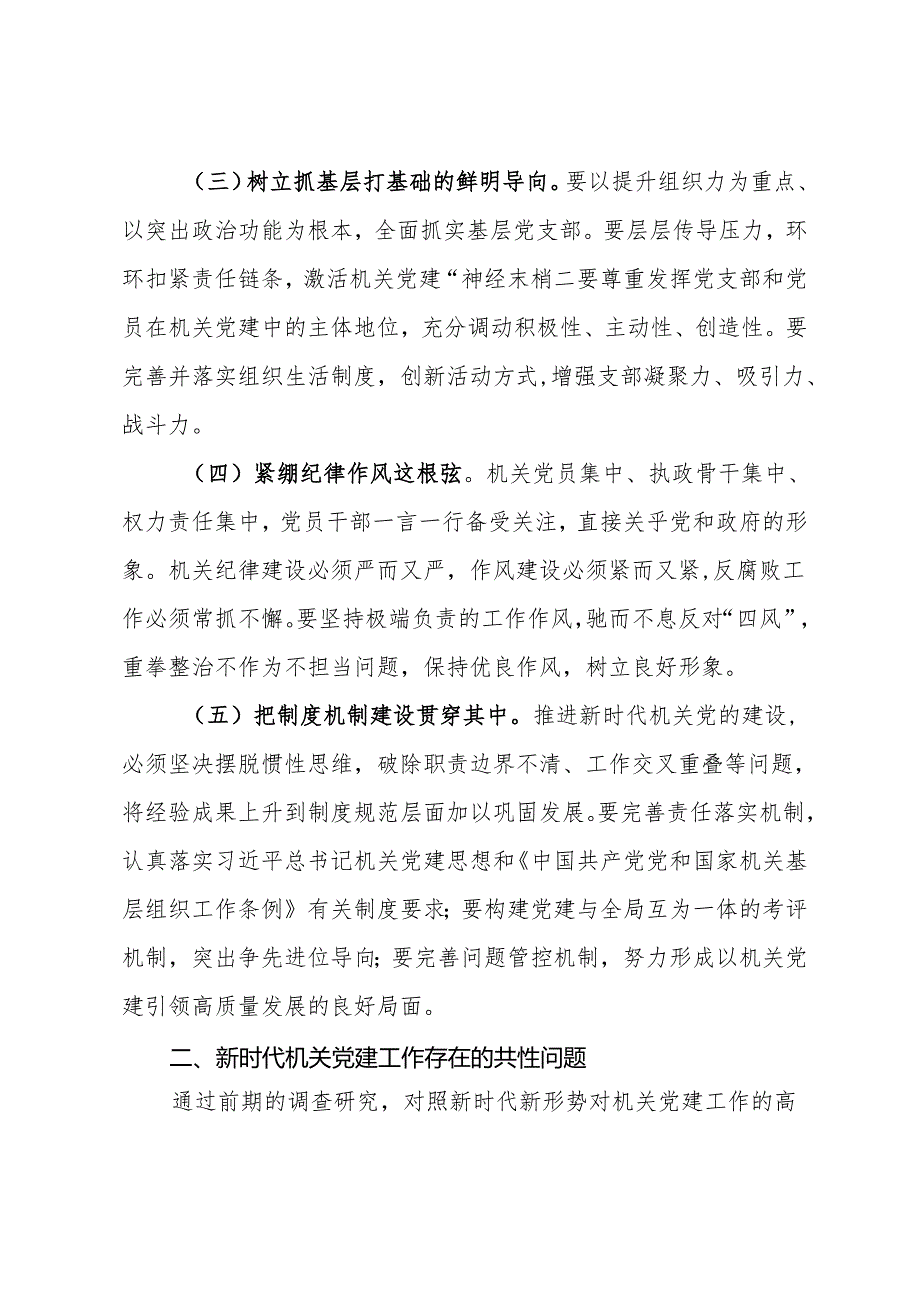 （三）树立抓基层打基础的鲜明导向。要以提升组织力为重点、
以突出政治功能为根本，全面抓实基层党支部。要层层传导压力，环
环扣紧责任链条，激活机关党建“神经末梢二要尊重发挥党支部和党
员在机关党建中的主体地位，充分调动积极性、主动性、创造性。要
完善并落实组织生活制度，创新活动方式,增强支部凝聚力、吸引力、
战斗力。
（四）紧绷纪律作风这根弦。机关党员集中、执政骨干集中、
权力责任集中，党员干部一言一行备受关注，直接关乎党和政府的形
象。机关纪律建设必须严而又严，作风建设必须紧而又紧,反腐败工
作必须常抓不懈。要坚持极端负责的工作作风，驰而不息反对“四风”，
重拳整治不作为不担当问题，保持优良作风，树立良好形象。
（五）把制度机制建设贯穿其中。推进新时代机关党的建设，
必须坚决摆脱惯性思维，破除职责边界不清、工作交叉重叠等问题，
将经验成果上升到制度规范层面加以巩固发展。要完善责任落实机制，
认真落实习近平总书记机关党建思想和《中国共产党党和国家机关基
层组织工作条例》有关制度要求；要构建党建与全局互为一体的考评
机制，突出争先进位导向；要完善问题管控机制，努力形成以机关党
建引领高质量发展的良好局面。
二、新时代机关党建工作存在的共性问题
通过前期的调查研究，对照新时代新形势对机关党建工作的高